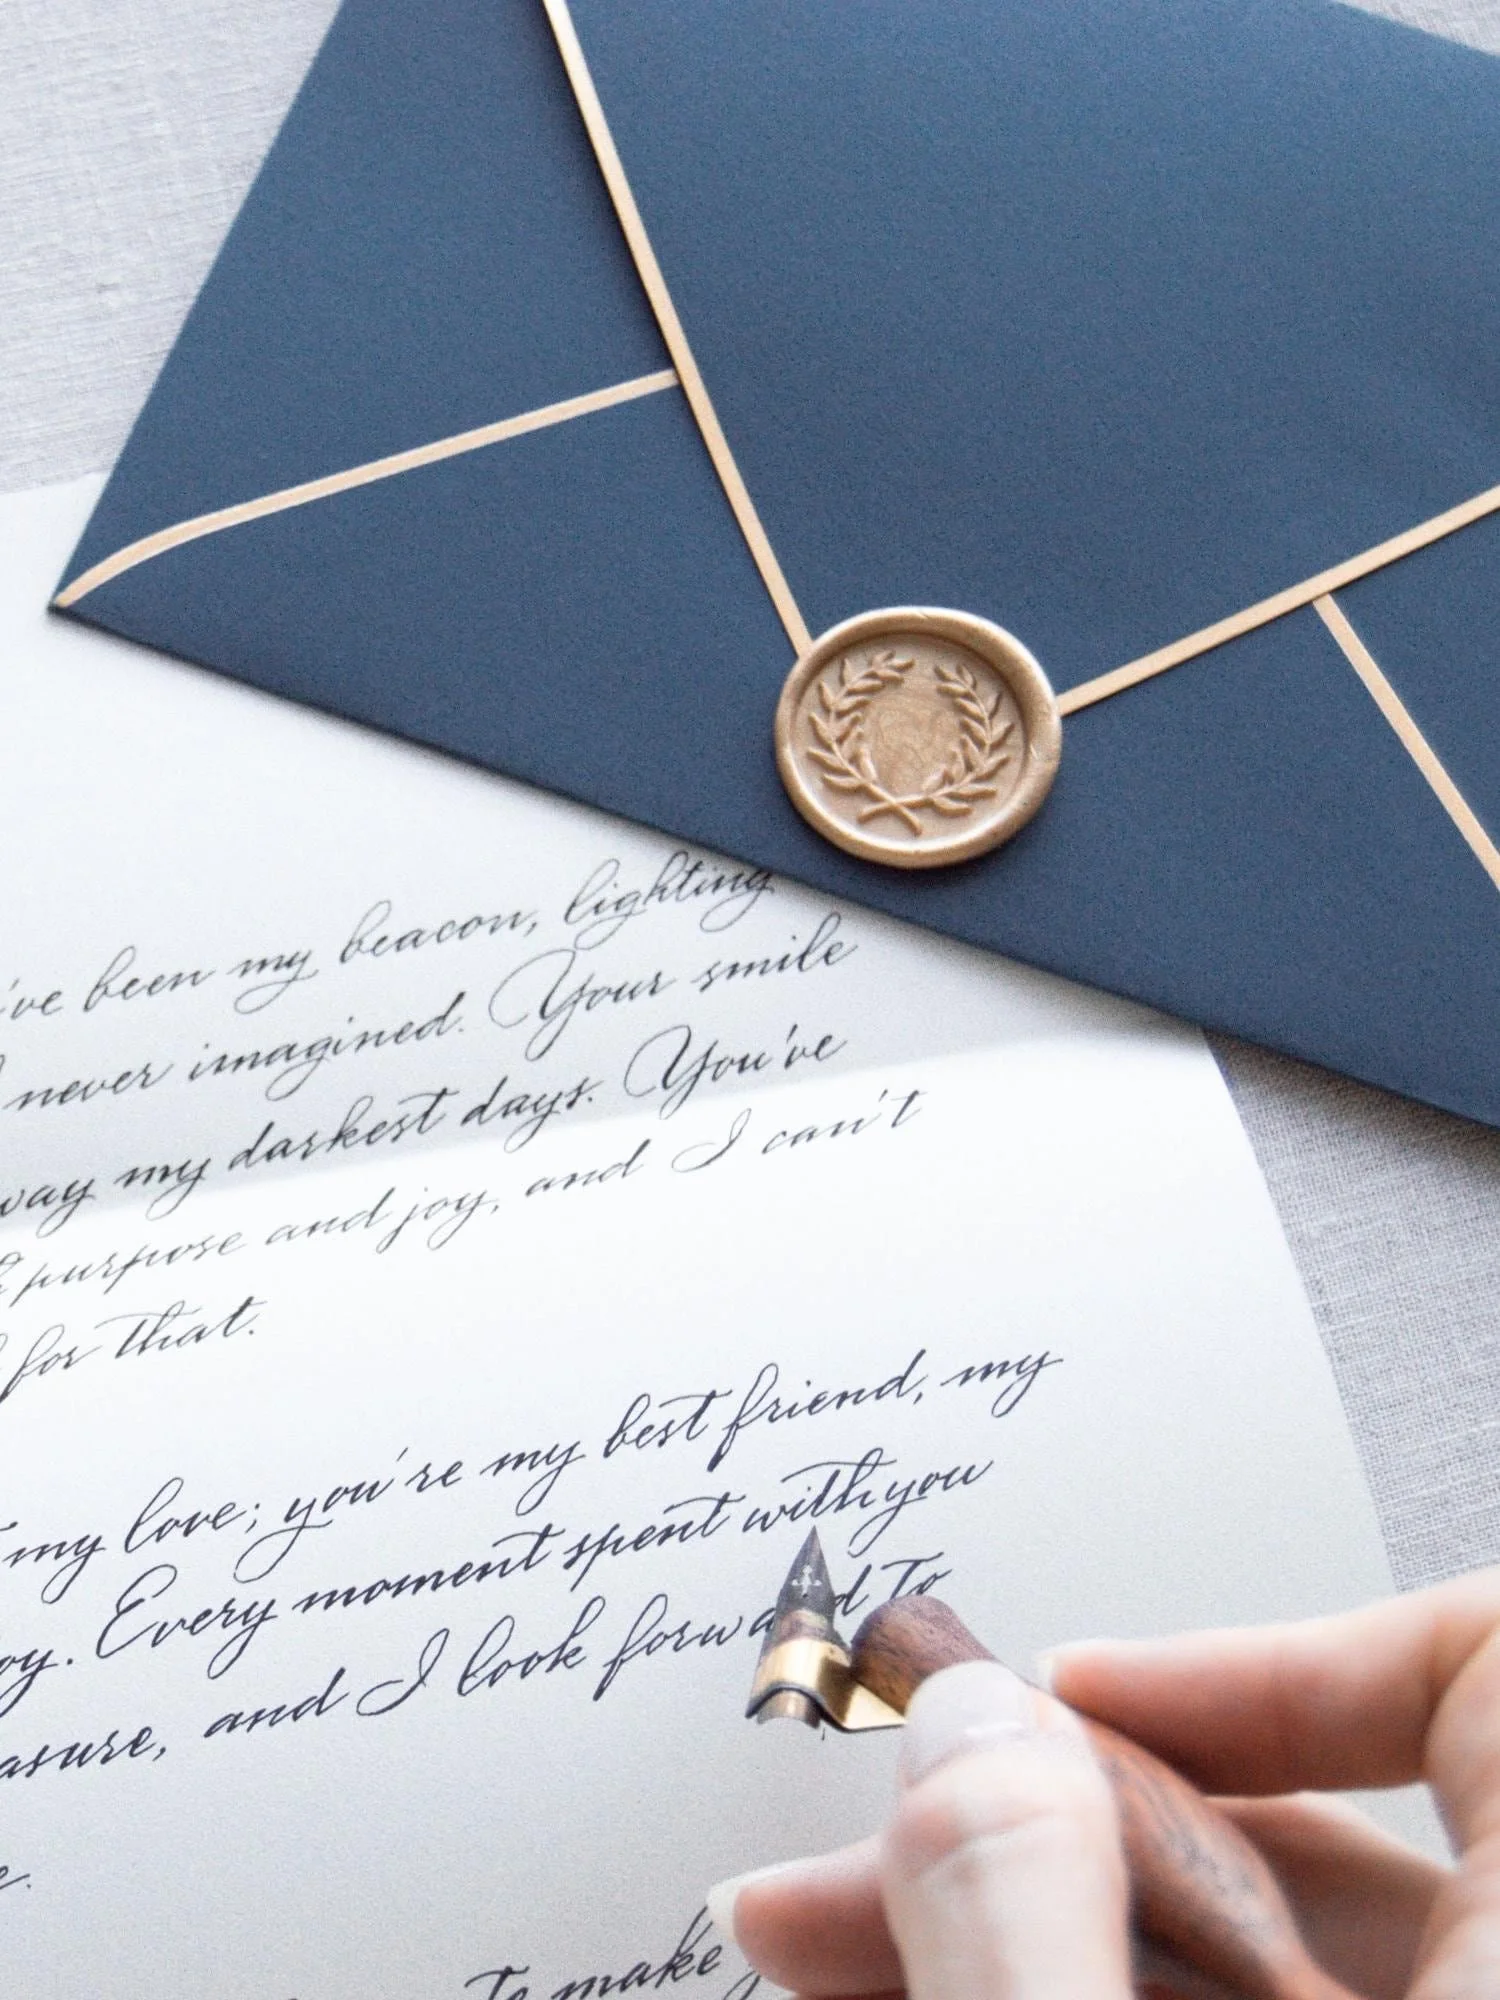 've been my beacon, lighting
never imagined. Your smile
way my darkest days. You've
purpose and joy, and I can't
for that.
my love; you're my best friend, my
oy. Every moment spent with you
asure, and I look forwa d to
e.
to make